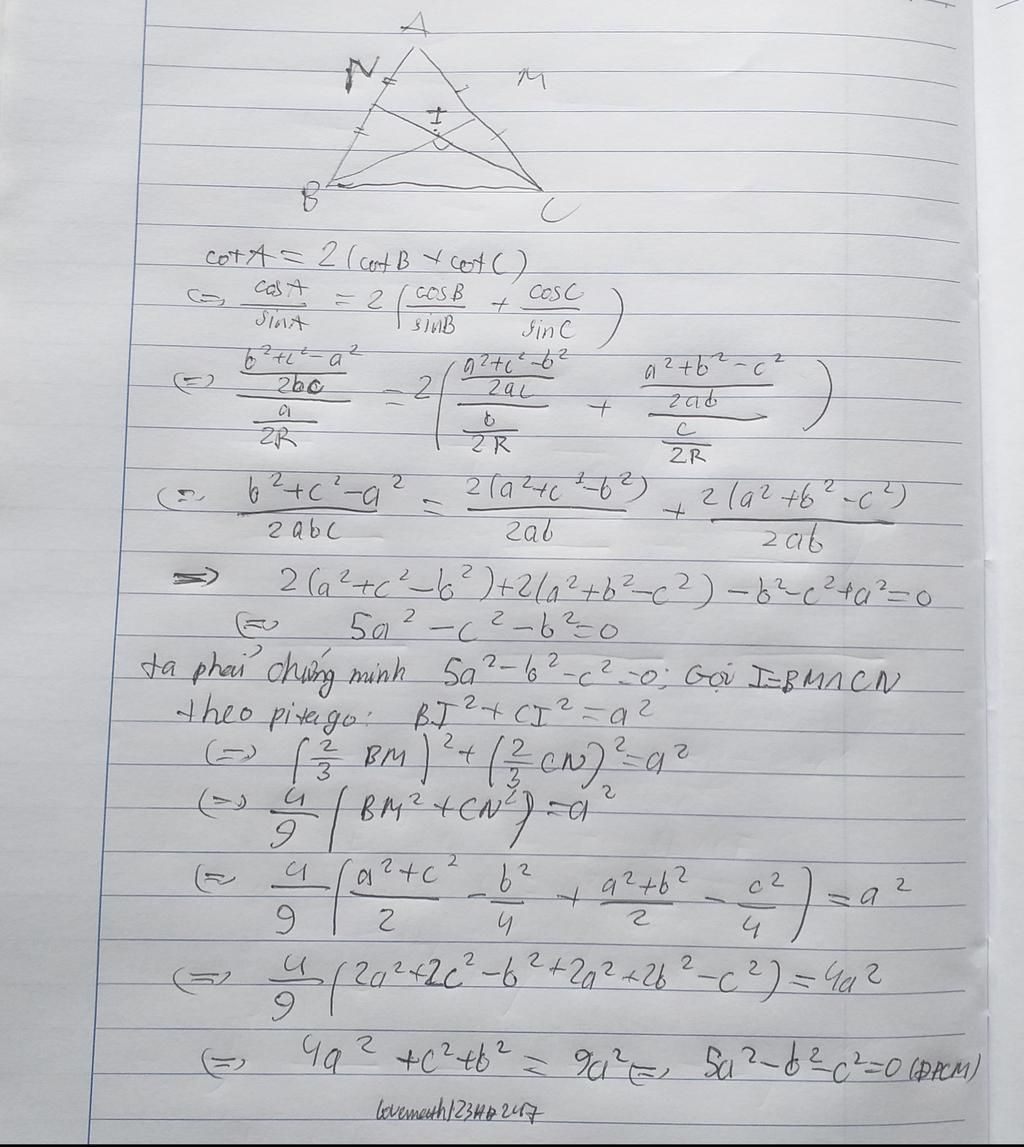 A
N
M
I
B
C
cotA = 2(cotB + cotC)
<=> cosA/sinA = 2(cosB/sinB + cosC/sinC)
<=> ((b²+c²-a²)/2bc)/(a/2R) = 2(((a²+c²-b²)/2ac)/(b/2R) + ((a²+b²-c²)/2ab)/(c/2R))
<=> (b²+c²-a²)/2abc = 2(a²+c²-b²)/2ab + 2(a²+b²-c²)/2ab
=> 2(a²+c²-b²)+2(a²+b²-c²)-b²-c²+a²=0
<=> 5a²-c²-b²=0
ta phải chứng minh 5a²-b²-c²=0; Gọi I=BM∩CN
theo pitago: BI²+CI²=a²
<=> (2/3 BM)²+(2/3 CN)²=a²
<=> 4/9(BM²+CN²)=a²
<=> 4/9((a²+c²)/2 - b²/4 + (a²+b²)/2 - c²/4) = a²
<=> 4/9(2a²+2c²-b²+2a²+2b²-c²)=4a²
<=> 4a²+c²+b²=9a² <=> 5a²-b²-c²=0 (ĐPCM)